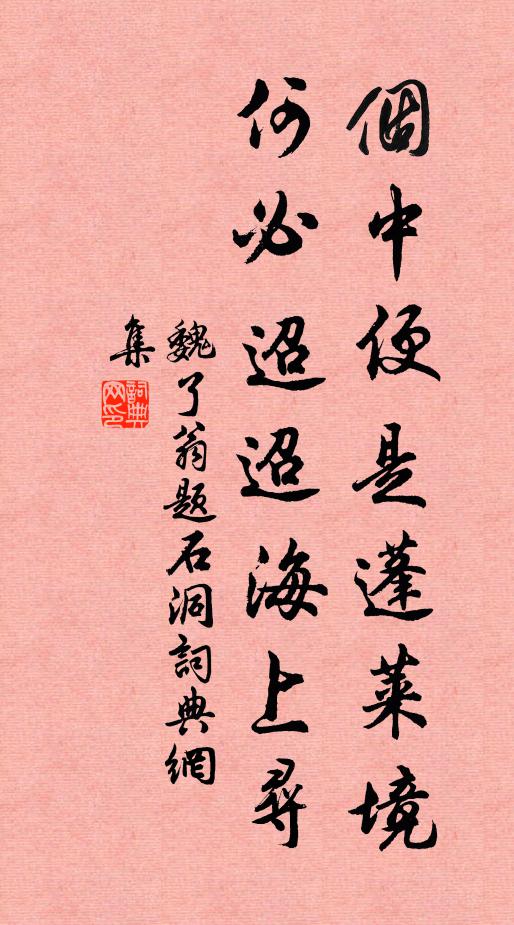 個中便是蓬萊境
何必迢迢海上尋
魏了翁題石洞詞典網
集
詞典
网印